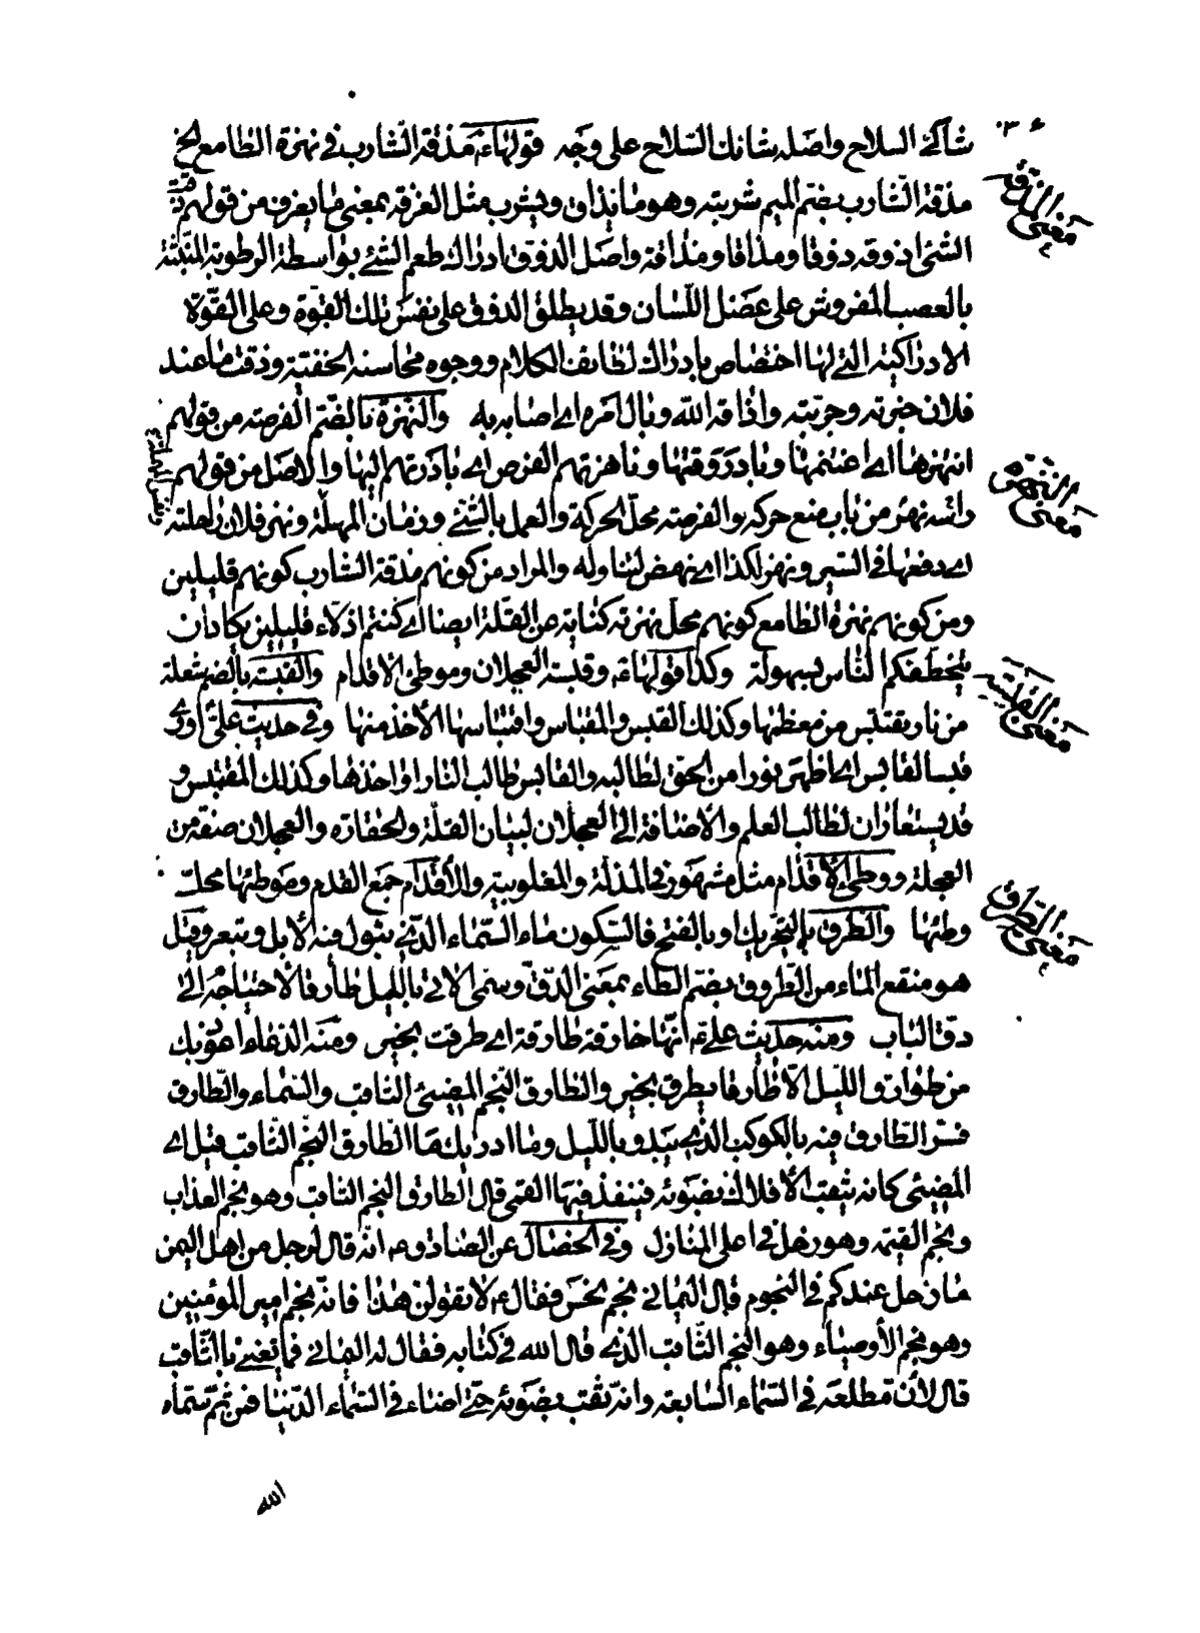 شاكي السلاح واصله شائك السلاح على وجه قولها ع مذقة الشارب في نهزة الطامع الخ
مذقة الشارب بضم الميم شربته وهو ما يذاق ويشرب مثل الغرفة بمعنى ما يغرف من قولهم ذقت
معنى المذقة
الشئ اذوقه ذوقا ومذاقا ومذاقة واصل الذوق ادراك طعم الشئ بواسطة الرطوبة المنبثة
بالعصب المفروش على عضل اللسان وقد يطلق الذوق على نفس تلك القوة وعلى القوة
الادراكية التي لها اختصاص بادراك لطايف الكلام ووجوه محاسنه الخفية وذقت ما عند
فلان خبرته وجربته واذاقه الله وبال امره اي اصابه به والنهزة بالضم الفرصة من قولهم
انتهزها اي اغتنمها وبادر وقتها وناهزتهم الفرص اي بادرتهم اليها والاصل من قولهم
معنى النهزة
راسه نهز من باب منع حركه والفرصة محل الحركة والعمل بالشئ وزمان المهلة ونهز فلان راحلته
اي دفعها في السير ونهز لكذا اي نهض لتناوله والمراد من كونهم مذقة الشارب كونهم قليلين
ومن كونهم نهزة الطامع كونهم محل نهزته كناية عن القلة ايضا اي كنتم اذلاء قليلين يكاد ان
يتخطفكم الناس بسهولة وكذا قولها ع وقبسة العجلان وموطئ الاقدام والقبسة بالضم شعلة
من نار يقتبس من معظمها وكذلك القبس والمقباس واقتباسها الأخذ منها وفي حديث علي اورى
معنى القبسة
قبسا لقابس اي اظهر نورا من الحق لطالبه والقابس طالب النار او اخذها وكذلك المقتبس و
قد يستعاران لطالب العلم والاضافة الى العجلان لبيان القلة والحقارة والعجلان صفة من
العجلة ووطئ الأقدام مثل مشهور في المذلة والمغلوبية والأقدام جمع القدم وموطئها محل
وطئها والطرق بالتحريك او بالفتح فالسكون ماء السماء الذي تبول فيه الأبل وتبعر وقيل
معنى الطرق
هو منقع الماء من الطروق بضم الطاء بمعنى الدق وسمى الاتي بالليل طارقا لأحتياجه الى
دق الباب ومنه حديث علي ع انها خارقة طارقة اي طرقت بخير ومنه الدعاء اعوذ بك
من طوارق الليل الا طارقا يطرق بخير والطارق النجم المضيئ الثاقب والسماء والطارق
فسر الطارق فيه بالكوكب الذي يبدو بالليل وما ادريك ما الطارق النجم الثاقب قيل اي
المضيئ كانه يثقب الأفلاك بضوئه فينفذ فيها القمي قال الطارق النجم الثاقب وهو نجم العذاب
ونجم القيمة وهو زحل في اعلى المنازل وفي الخصال عن الصادق ع انه قال لرجل من اهل اليمن
ما زحل عندكم في النجوم قال اليماني نجم نحس فقال ع لا تقولن هذا فانه نجم امير المؤمنين
وهو نجم الأوصياء وهو النجم الثاقب الذي قال الله في كتابه فقال له اليماني فما يعني بالثاقب
قال لأن مطلعه في السماء السابعة وانه ثقب بضوئه حتى اضاء في السماء الدنيا فمن ثم سماه
الله